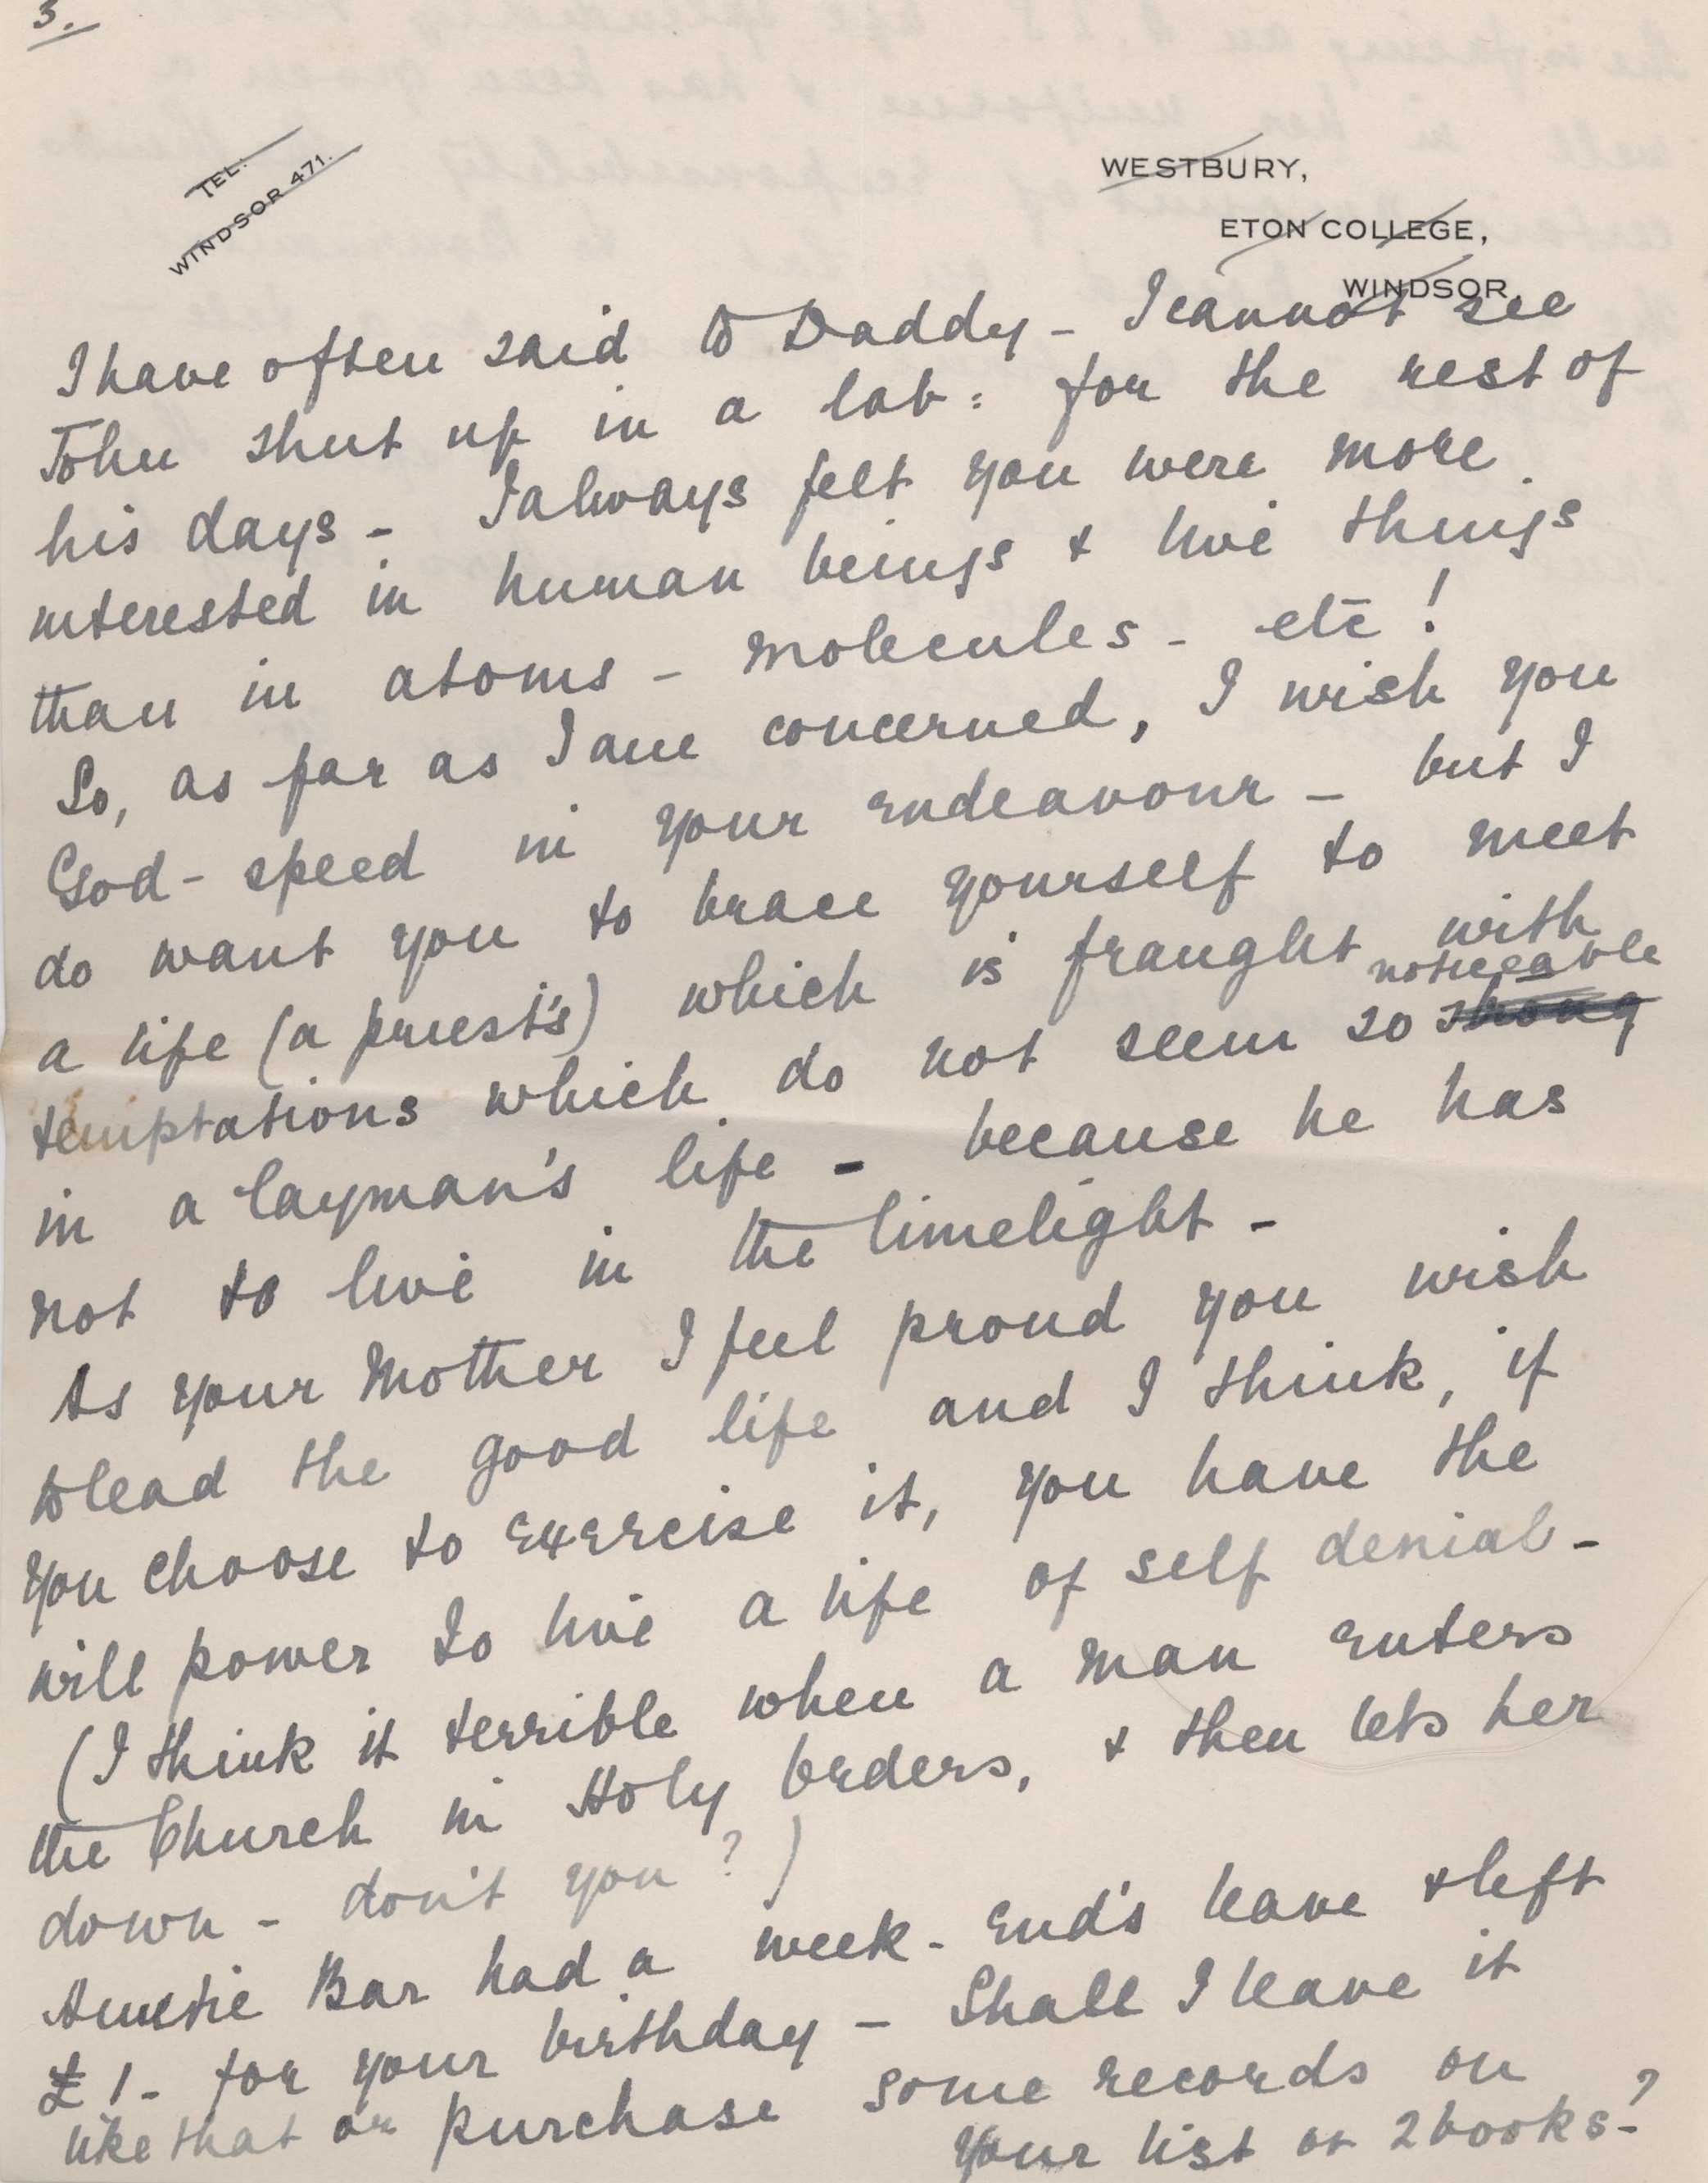 3.
TEL:
WINDSOR 471.
WESTBURY,
ETON COLLEGE,
WINDSOR.
I have often said to Daddy - I cannot see
John shut up in a lab: for the rest of
his days - I always felt you were more
interested in human beings & live things
than in atoms - molecules - etc!
So, as far as I am concerned, I wish you
God-speed in your endeavour - but I
do want you to brace yourself to meet
a life (a priest's) which is fraught with
temptations which do not seem so strong noticeable
in a layman's life - because he has
not to live in the limelight -
As your Mother I feel proud you wish
to lead the good life and I think, if
you choose to exercise it, you have the
will power to live a life of self denial -
(I think it terrible when a man enters
the Church in Holy Orders, & then lets her
down - don't you?)
Auntie Bar had a week-end's leave & left
£1- for your birthday - Shall I leave it
like that or purchase some records on
your list or 2 books-?